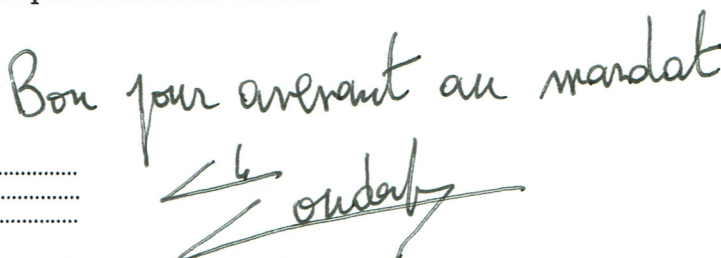 Bon pour avenant au mandat